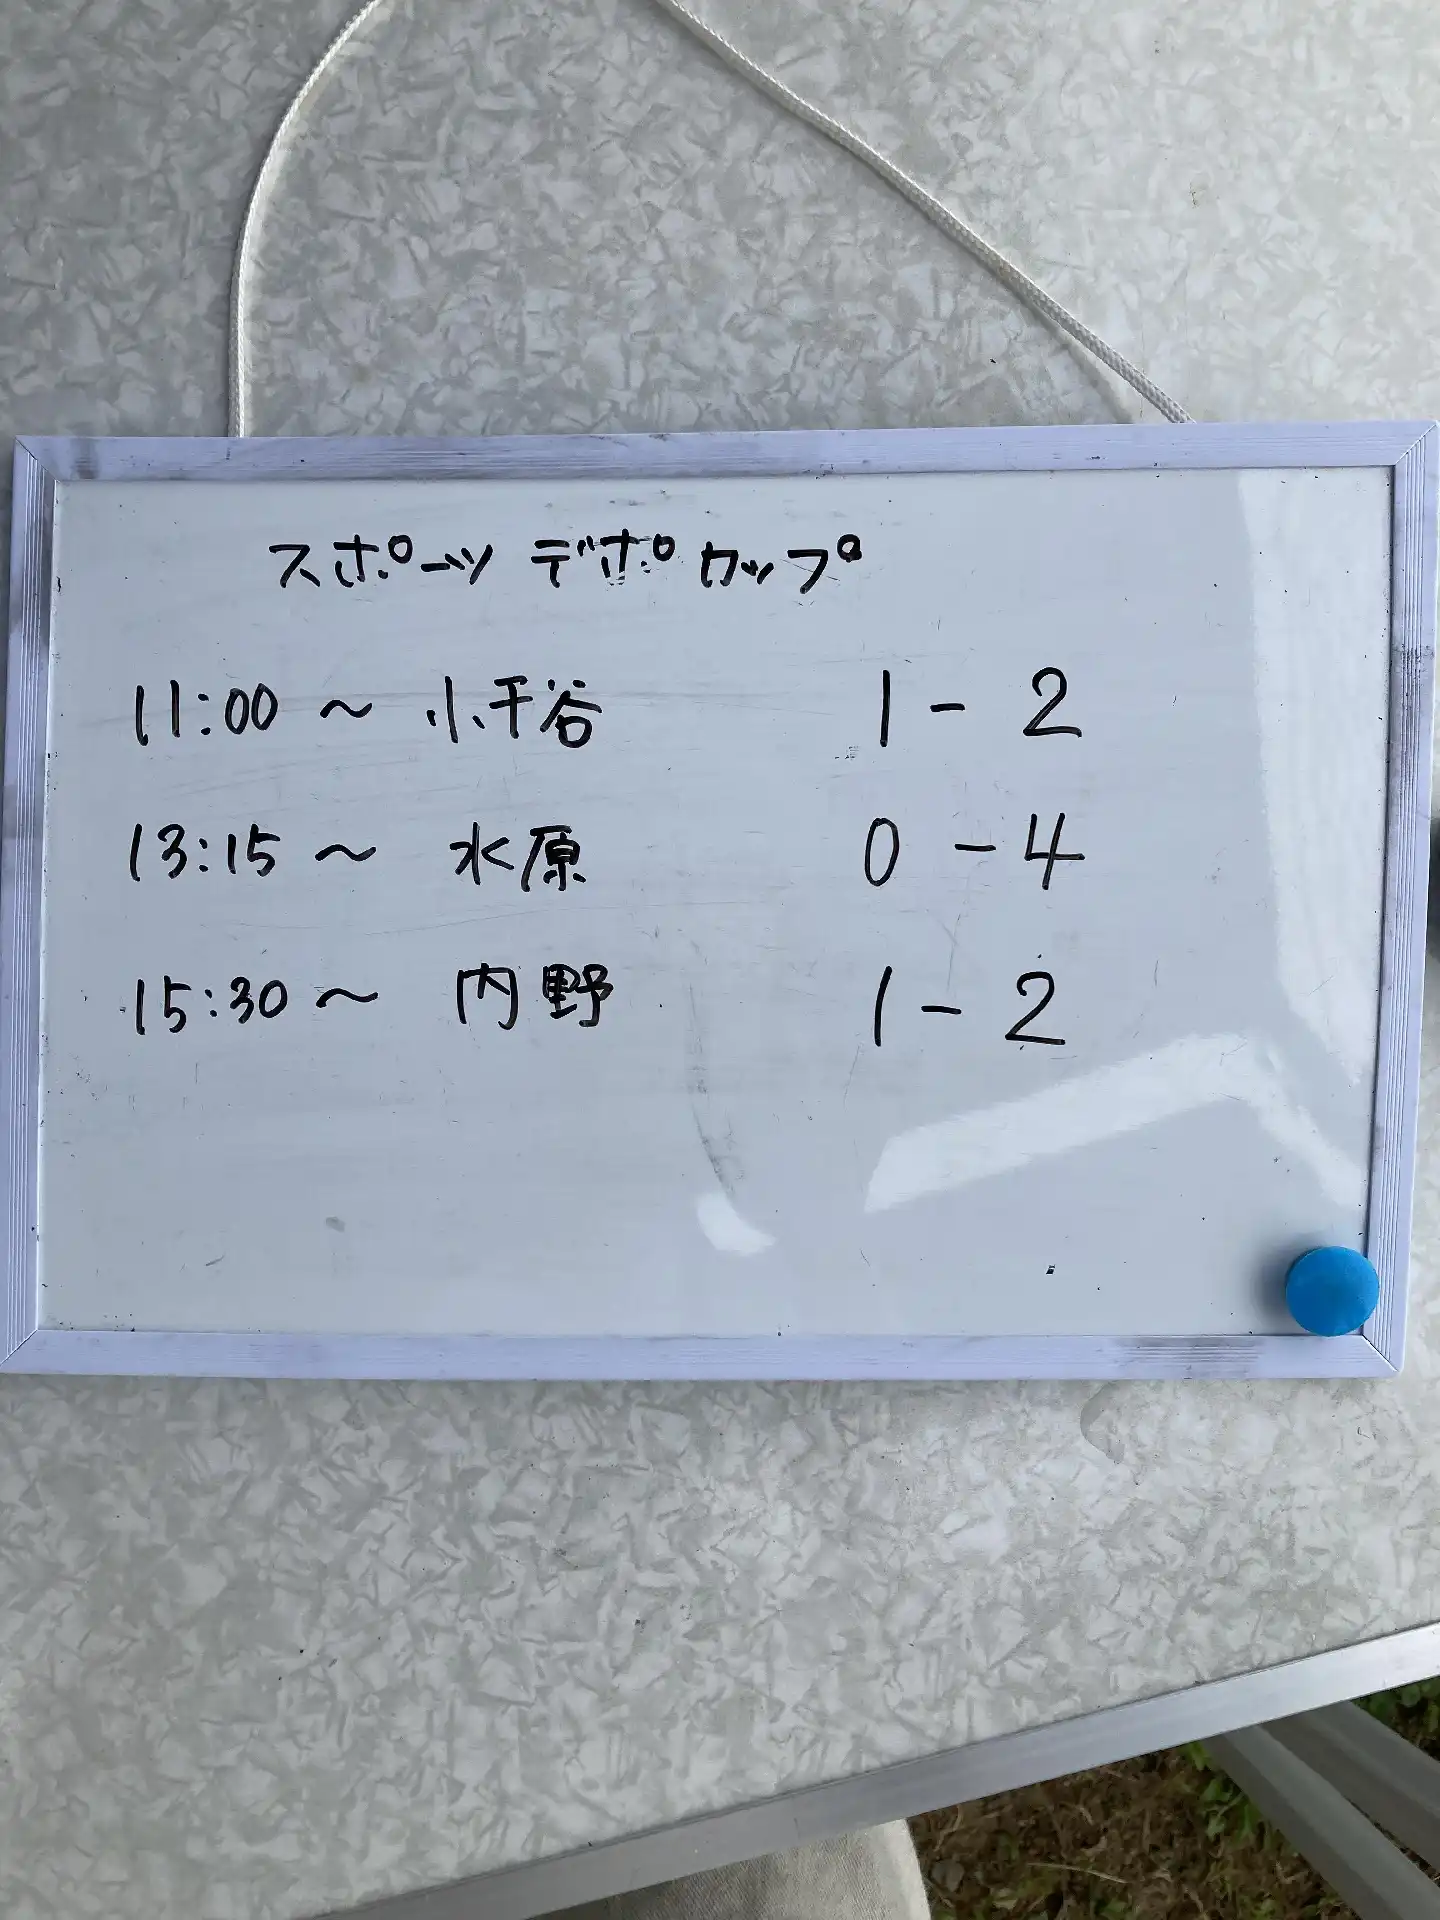 スポーツ デポ カップ
11:00 ~ 小千谷 1 - 2
13:15 ~ 水原 0 - 4
15:30 ~ 内野 1 - 2